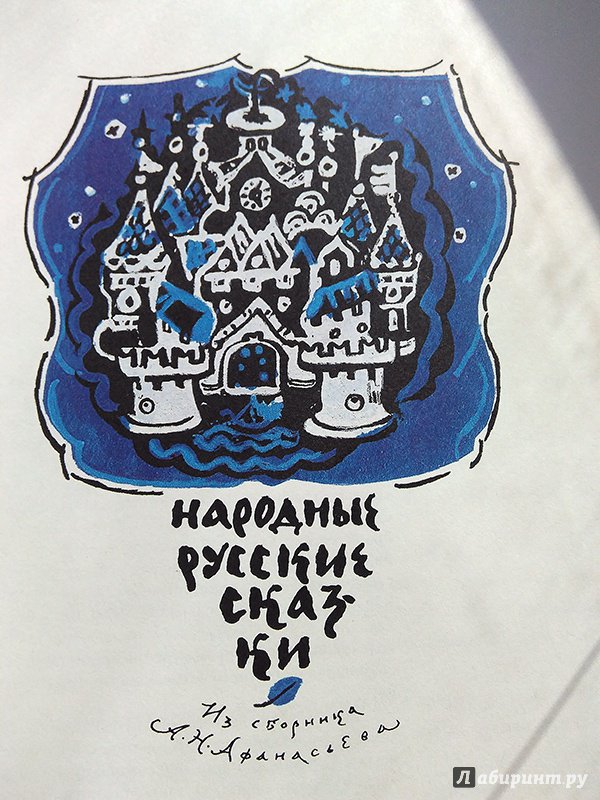 НАРОДНЫЕ
РУССКИЕ
СКАЗ-
КИ
Из сборника
А.Н.Афанасьева
Лабиринт.ру